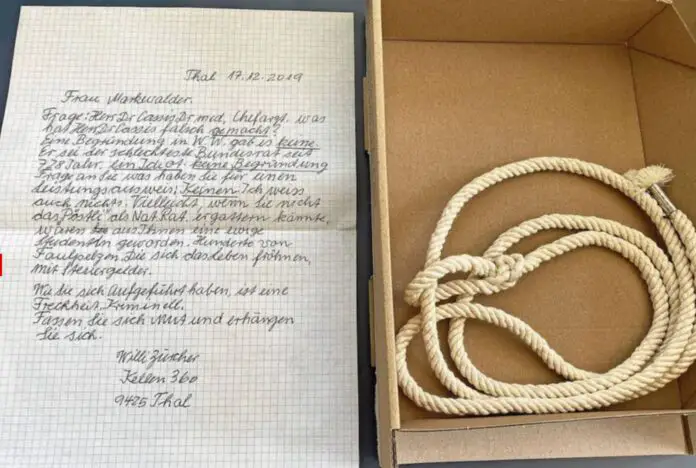 Thal 17.12.2019
Frau Markwalder.
Frage: Herr Dr Cassis Dr med, Chefarzt. was
hat Herr Dr Cassis falsch gemacht?
Eine Begründung in W.W. gab es keine.
Er sei der schlechteste Bundesrat seit
728 Jahr. ein Idiot. keine Begründung
Frage an Sie was haben Sie für einen
Leistungsausweis; Keinen. Ich weiss
auch nichts. Villeicht, wenn Sie nicht
das "Pöstli" als Nat.Rat. ergattern könnte,
wären aus Ihnen eine ewige
Studentin geworden. Hunderte von
Faulpelzen. Die sich das Leben fröhnen,
mit Steuergelder.
Wie Sie sich aufgeführt haben, ist eine
Frechheit. Kriminell.
Fassen Sie sich Mut und erhängen
Sie sich.
Willi Zürcher
Kellen 360
9425 Thal